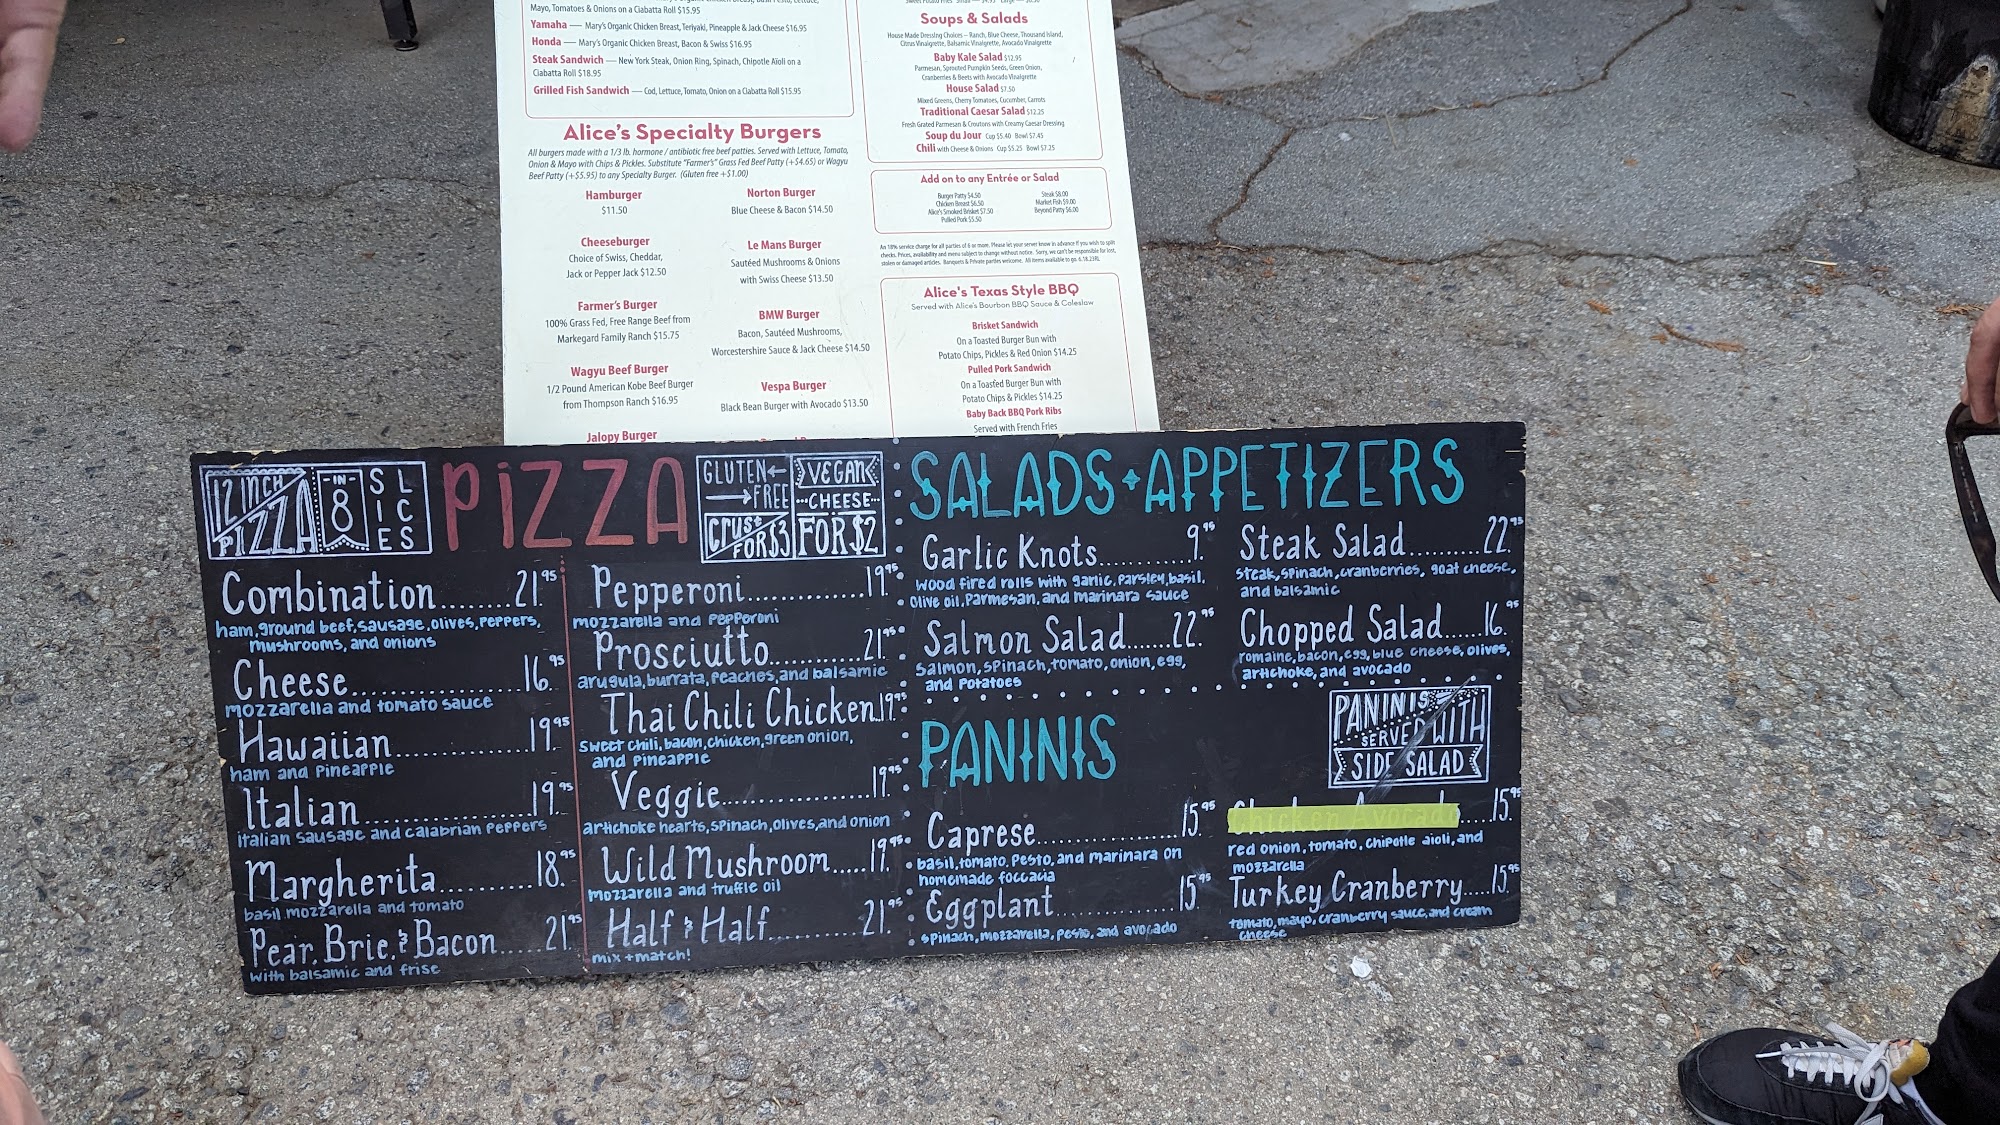 Mayo, Tomatoes & Onions on a Ciabatta Roll $15.95
Yamaha — Mary's Organic Chicken Breast, Teriyaki, Pineapple & Jack Cheese $16.95
Honda — Mary's Organic Chicken Breast, Bacon & Swiss $16.95
Steak Sandwich — New York Steak, Onion Ring, Spinach, Chipotle Aïoli on a
Ciabatta Roll $18.95
Grilled Fish Sandwich — Cod, Lettuce, Tomato, Onion on a Ciabatta Roll $15.95
Alice's Specialty Burgers
All burgers made with a 1/3 lb. hormone / antibiotic free beef patties. Served with Lettuce, Tomato,
Onion & Mayo with Chips & Pickles. Substitute "Farmer's" Grass Fed Beef Patty (+$4.65) or Wagyu
Beef Patty (+$5.95) to any Specialty Burger. (Gluten free +$1.00)
Hamburger
$11.50
Cheeseburger
Choice of Swiss, Cheddar,
Jack or Pepper Jack $12.50
Farmer's Burger
100% Grass Fed, Free Range Beef from
Markegard Family Ranch $15.75
Wagyu Beef Burger
1/2 Pound American Kobe Beef Burger
from Thompson Ranch $16.95
Jalopy Burger
Norton Burger
Blue Cheese & Bacon $14.50
Le Mans Burger
Sautéed Mushrooms & Onions
with Swiss Cheese $13.50
BMW Burger
Bacon, Sautéed Mushrooms,
Worcestershire Sauce & Jack Cheese $14.50
Vespa Burger
Black Bean Burger with Avocado $13.50
Soups & Salads
House Made Dressing Choices – Ranch, Blue Cheese, Thousand Island,
Citrus Vinaigrette, Balsamic Vinaigrette, Avocado Vinaigrette
Baby Kale Salad $12.95
Parmesan, Sprouted Pumpkin Seeds, Green Onion,
Cranberries & Beets with Avocado Vinaigrette
House Salad $7.50
Mixed Greens, Cherry Tomatoes, Cucumber, Carrots
Traditional Caesar Salad $12.25
Fresh Grated Parmesan & Croutons with Creamy Caesar Dressing
Soup du Jour Cup $5.40 Bowl $7.45
Chili with Cheese & Onions Cup $5.25 Bowl $7.25
Add on to any Entrée or Salad
Burger Patty $4.50
Chicken Breast $6.50
Alice's Smoked Brisket $7.50
Pulled Pork $5.50
Steak $8.00
Market Fish $9.00
Beyond Patty $6.00
An 18% service charge for all parties of 6 or more. Please let your server know in advance if you wish to split
checks. Prices, availability and menu subject to change without notice. Sorry, we can't be responsible for lost,
stolen or damaged articles. Banquets & Private parties welcome. All items available to go. 6.18.23RL
Alice's Texas Style BBQ
Served with Alice's Bourbon BBQ Sauce & Coleslaw
Brisket Sandwich
On a Toasted Burger Bun with
Potato Chips, Pickles & Red Onion $14.25
Pulled Pork Sandwich
On a Toasted Burger Bun with
Potato Chips & Pickles $14.25
Baby Back BBQ Pork Ribs
Served with French Fries
12 INCH PIZZA -IN- 8 SLICES
PIZZA
GLUTEN FREE CRUST FOR $3
VEGAN CHEESE FOR $2
Combination........21.95
ham, ground beef, sausage, olives, peppers,
mushrooms, and onions
Cheese...................16.95
mozzarella and tomato sauce
Hawaiian..............19.95
ham and pineapple
Italian..................19.95
italian sausage and calabrian peppers
Margherita..........18.95
basil mozzarella and tomato
Pear, Brie, & Bacon.....21.95
with balsamic and frise
Pepperoni.............19.95
mozzarella and pepperoni
Prosciutto...........21.95
arugula, burrata, peaches, and balsamic
Thai Chili Chicken.19.95
sweet chili, bacon, chicken, green onion,
and pineapple
Veggie.................19.95
artichoke hearts, spinach, olives, and onion
Wild Mushroom.....19.95
mozzarella and truffle oil
Half & Half..........21.95
mix + match!
SALADS + APPETIZERS
Garlic Knots...........9.95
wood fired rolls with garlic, parsley, basil,
olive oil, parmesan, and marinara sauce
Salmon Salad.....22.95
salmon, spinach, tomato, onion, egg,
and potatoes
Steak Salad.........22.95
steak, spinach, cranberries, goat cheese,
and balsamic
Chopped Salad.....16.95
romaine, bacon, egg, blue cheese, olives,
artichoke, and avocado
PANINIS
PANINIS SERVED WITH
SIDE SALAD
Caprese..............15.95
basil, tomato, pesto, and marinara on
homemade foccacia
Eggplant.............15.95
spinach, mozzarella, pesto, and avocado
Chicken Avocado.....15.95
red onion, tomato, chipotle aioli, and
mozzarella
Turkey Cranberry.....15.95
tomato, mayo, cranberry sauce, and cream
cheese